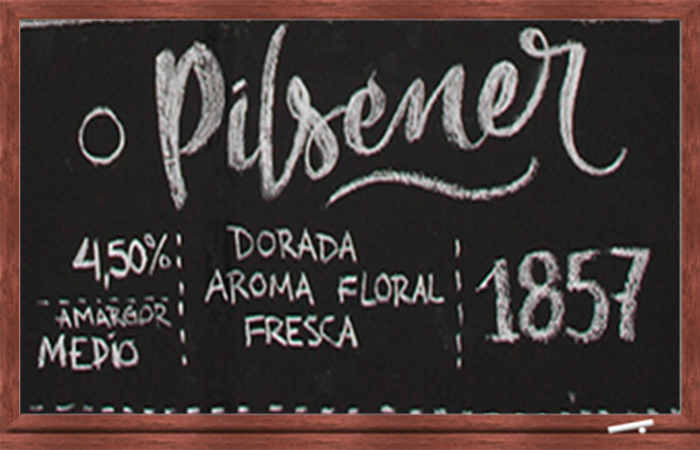 Pilsener
4,50%
AMARGOR
MEDIO
DORADA
AROMA FLORAL
FRESCA
1857